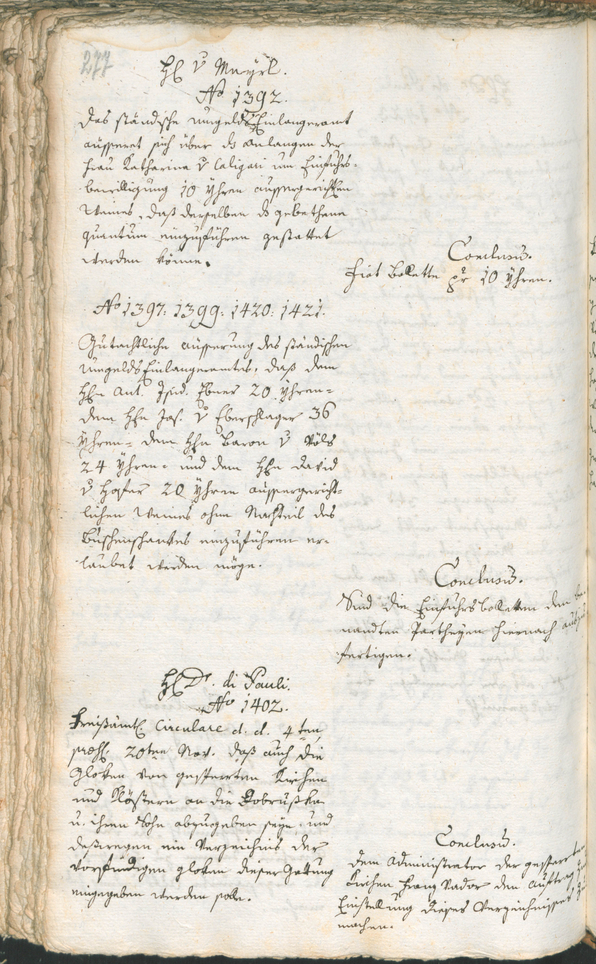 277
H. v Mayrl.
No 1392.
Das ständische Umgelds Einlangeramt
äussert sich über das Anlangen der
Frau Katharina v Caligari um Einfuhrs-
bewilligung 10 Yhren aussergerichten
Weines, daß derselben das gebethene
quantum einzuführen gestattet
werden könne.
Conclusum.
Fiat Bollette pr 10 Yhren.
No 1397: 1399: 1420: 1421.
Gutachtliche äusserung des ständischen
Umgelds Einlangeramtes, daß dem
Hhn Ant. Isid. Ebner 20 Yhren-
dem Hhn Jos. v Eberschlager 36
Yhren- dem Hhn Baron v Völs
24 Yhren- und dem Hhn David
v Hofer 20 Yhren aussergericht-
lichen Weines ohne Nachteil des
Buschenschankes einzuführen er-
laubet werden möge.
Conclusum.
Sind die Einfuhrsbolleten den be-
nandten Partheyen hiernach
fertigen.
H. Dr. di Pauli.
No 1402.
Kreisämtl. Circulare d. d. 4ten
praes. 20ten Nov. daß auch die
Gloken von gesperrten Kirchen
und Klöstern an die Dobruska
u. ihren Sohn abzugeben seyen und
deßwegen ein Verzeichnis der
vorfindigen gloken dieser Gattung
eingegeben werden solle.
Conclusum.
dem Administrator der gesperrten
Kirchen Franz Nador den Auftrag
Einstellung dieses Verzeichnisses
machen.